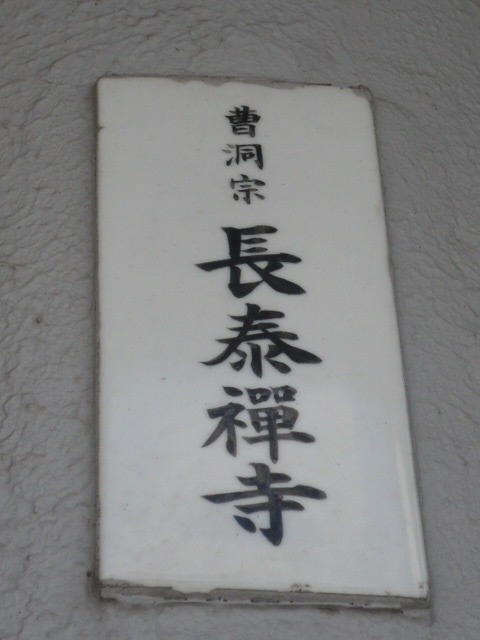 曹洞宗 長泰禪寺